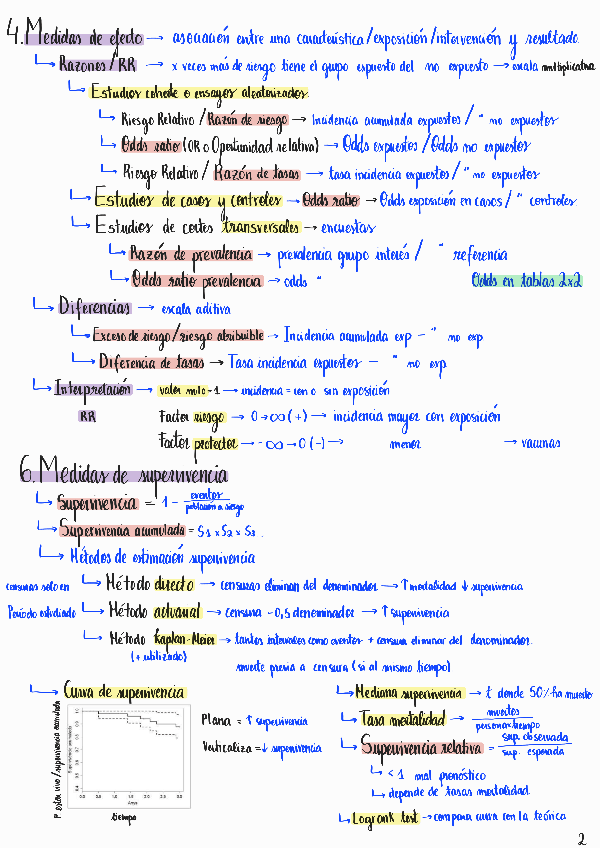 4. Medidas de efecto → asociación entre una característica/exposición/intervención y resultado.
Razones/RR → x veces más de riesgo tiene el grupo expuesto del no expuesto → escala multiplicativa
Estudios cohorte o ensayos aleatorizados.
Riesgo Relativo / Razón de riesgo → Incidencia acumulada expuestos / " no expuestos
Odds ratio (OR o Oportunidad relativa) → Odds expuestos / Odds no expuestos
Riesgo Relativo / Razón de tasas → tasa incidencia expuestos / " no expuestos
Estudios de casos y controles → Odds ratio → Odds exposición en casos / " controles
Estudios de cortes transversales → encuestas
Razón de prevalencia → prevalencia grupo interés / " referencia
Odds ratio prevalencia → odds "
Odds en tablas 2x2
Diferencias → escala aditiva
Exceso de riesgo/riesgo atribuible → Incidencia acumulada exp - " no exp
Diferencia de tasas → Tasa incidencia expuestos - " no exp
Interpretación → valor nulo = 1 → incidencia = con o sin exposición
RR
Factor riesgo → 0 → ∞ (+) → incidencia mayor con exposición
Factor protector → -∞ → 0 (-) → menor → vacunas
6. Medidas de supervivencia
Supervivencia = 1 - eventos / población a riesgo
Supervivencia acumulada = S1 x S2 x S3.
Métodos de estimación supervivencia
censuras solo en
Período estudiado
Método directo → censuras eliminan del denominador → ↑ mortalidad ↓ supervivencia
Método actuarial → censura - 0,5 denominador → ↑ supervivencia
Método Kaplan-Meier → tantos intervalos como eventos + censura eliminar del denominador.
(+ utilizado)
muerte previa a censura (si al mismo tiempo)
Curva de supervivencia
P. estar vivo / supervivencia acumulada
0.0 0.5 1.0 1.5 2.0 2.5 3.0
tiempo
Plana = ↑ supervivencia
Verticaliza = ↓ supervivencia
Mediana supervivencia → t donde 50% ha muerto
Tasa mortalidad → muertes / personas x tiempo
Supervivencia relativa = sup. observada / sup. esperada
< 1 mal pronóstico
depende de tasas mortalidad.
Logrank test → compara curva con la teórica
2